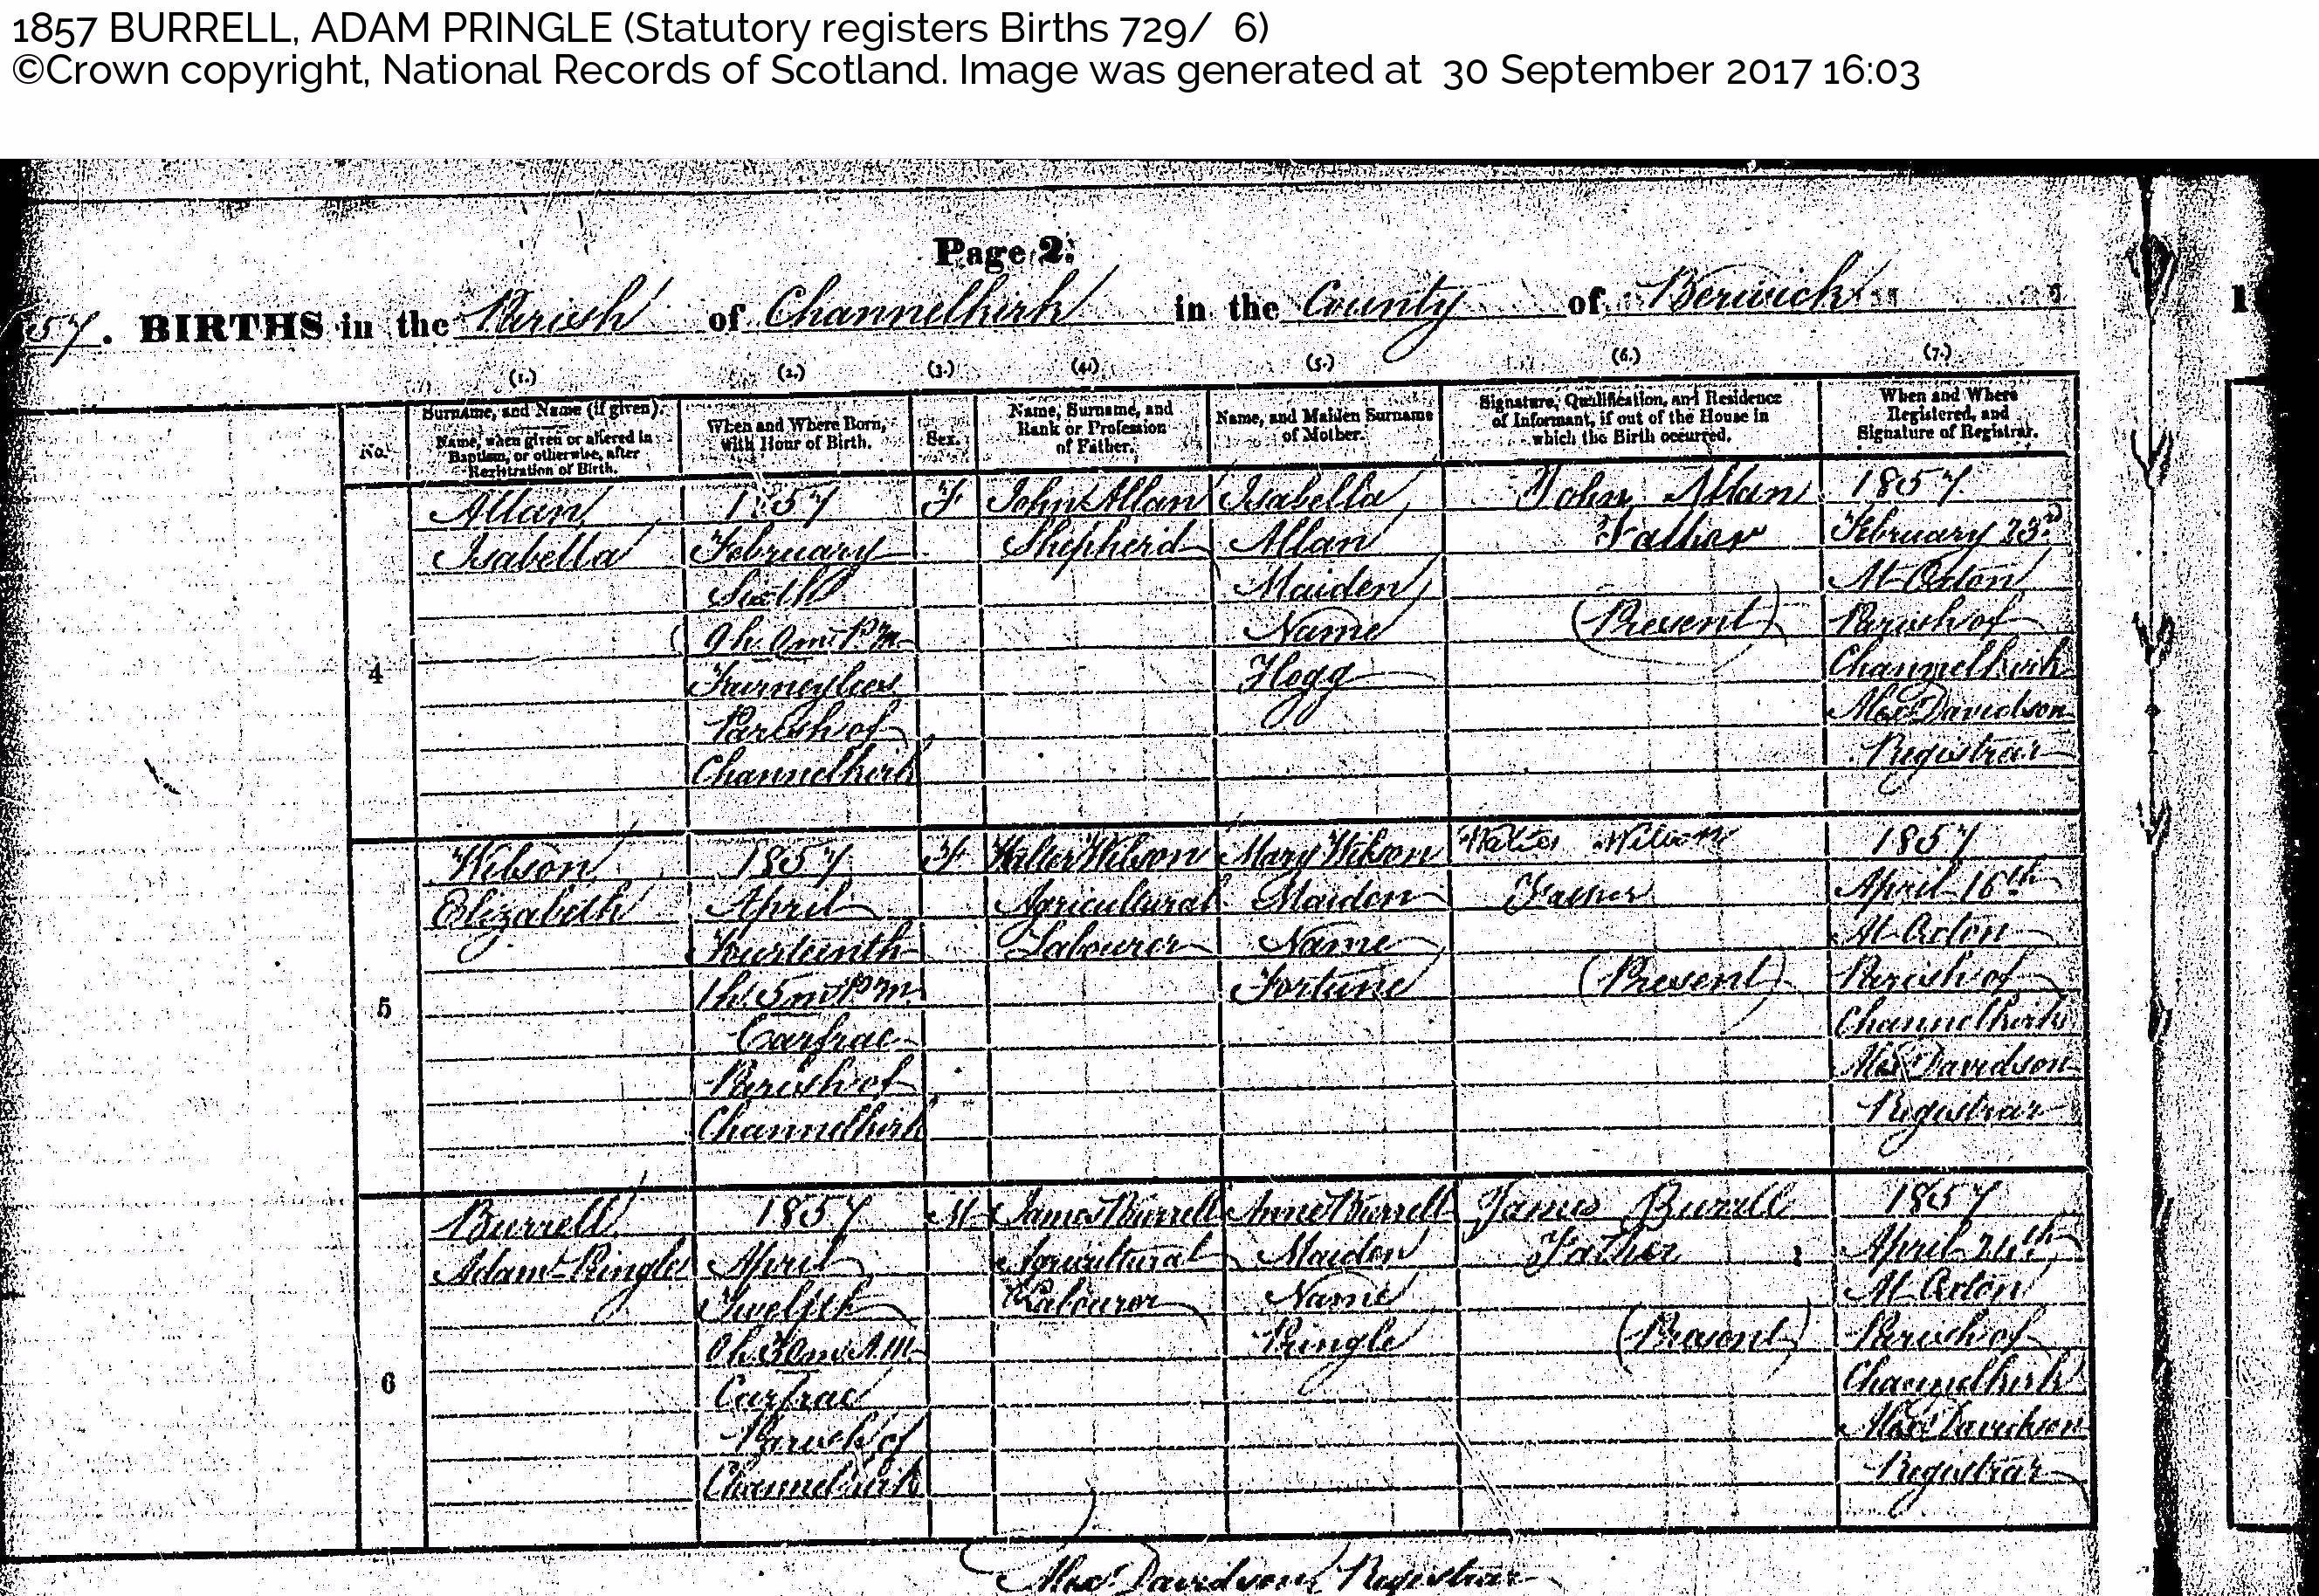 1857 BURRELL, ADAM PRINGLE (Statutory registers Births 729/ 6)
©Crown copyright, National Records of Scotland. Image was generated at 30 September 2017 16:03
Page 2.
57. BIRTHS in the Parish of Channelkirk in the County of Berwick
(1.) (2.) (3.) (4.) (5.) (6.) (7.)
No.
Surname, and Name (if given).
Name, when given or altered in
Baptism, or otherwise, after
Registration of Birth.
When and Where Born,
with Hour of Birth.
Sex.
Name, Surname, and
Rank or Profession
of Father.
Name, and Maiden Surname
of Mother.
Signature, Qualification, and Residence
of Informant, if out of the House in
which the Birth occurred.
When and Where
Registered, and
Signature of Registrar.
4
Allan
Isabella
1857
February
Sixth
9h. 0m. P.M.
Parish of
Channelkirk
F.
John Allan
Shepherd
Isabella
Allan
Maiden
Name
Hogg
John Allan
Father
(Present)
1857
February 23rd
At Oxton
Parish of
Channelkirk
Alexr Davidson
Registrar
5
Wilson
Elizabeth
1857
April
Fourteenth
1h. 5m. P.M.
Carfrae
Parish of
Channelkirk
F.
Walter Wilson
Agricultural
Labourer
Mary Wilson
Maiden
Name
Fortune
Walter Wilson
Father
(Present)
1857
April 16th
At Oxton
Parish of
Channelkirk
Alexr Davidson
Registrar
6
Burrell
Adam Pringle
1857
April
Twelfth
0h. 30m. A.M.
Carfrae
Parish of
Channelkirk
M.
James Burrell
Agricultural
Labourer
Anne Burrell
Maiden
Name
Pringle
James Burrell
Father
(Present)
1857
April 24th
At Oxton
Parish of
Channelkirk
Alexr Davidson
Registrar
Alexr Davidson Registrar